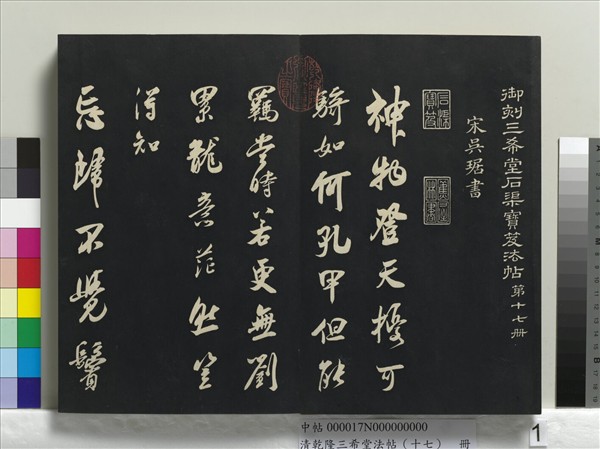 御刻三希堂石渠寶笈法帖第十七冊
宋吳琚書
石渠寶笈
神物登天擾可
騎如何孔甲但能
羈當時若更無劉
累龍意茫然豈
得知
忘歸不覺鬢
中帖 000017N000000000
清乾隆三希堂法帖（十七） 冊
1